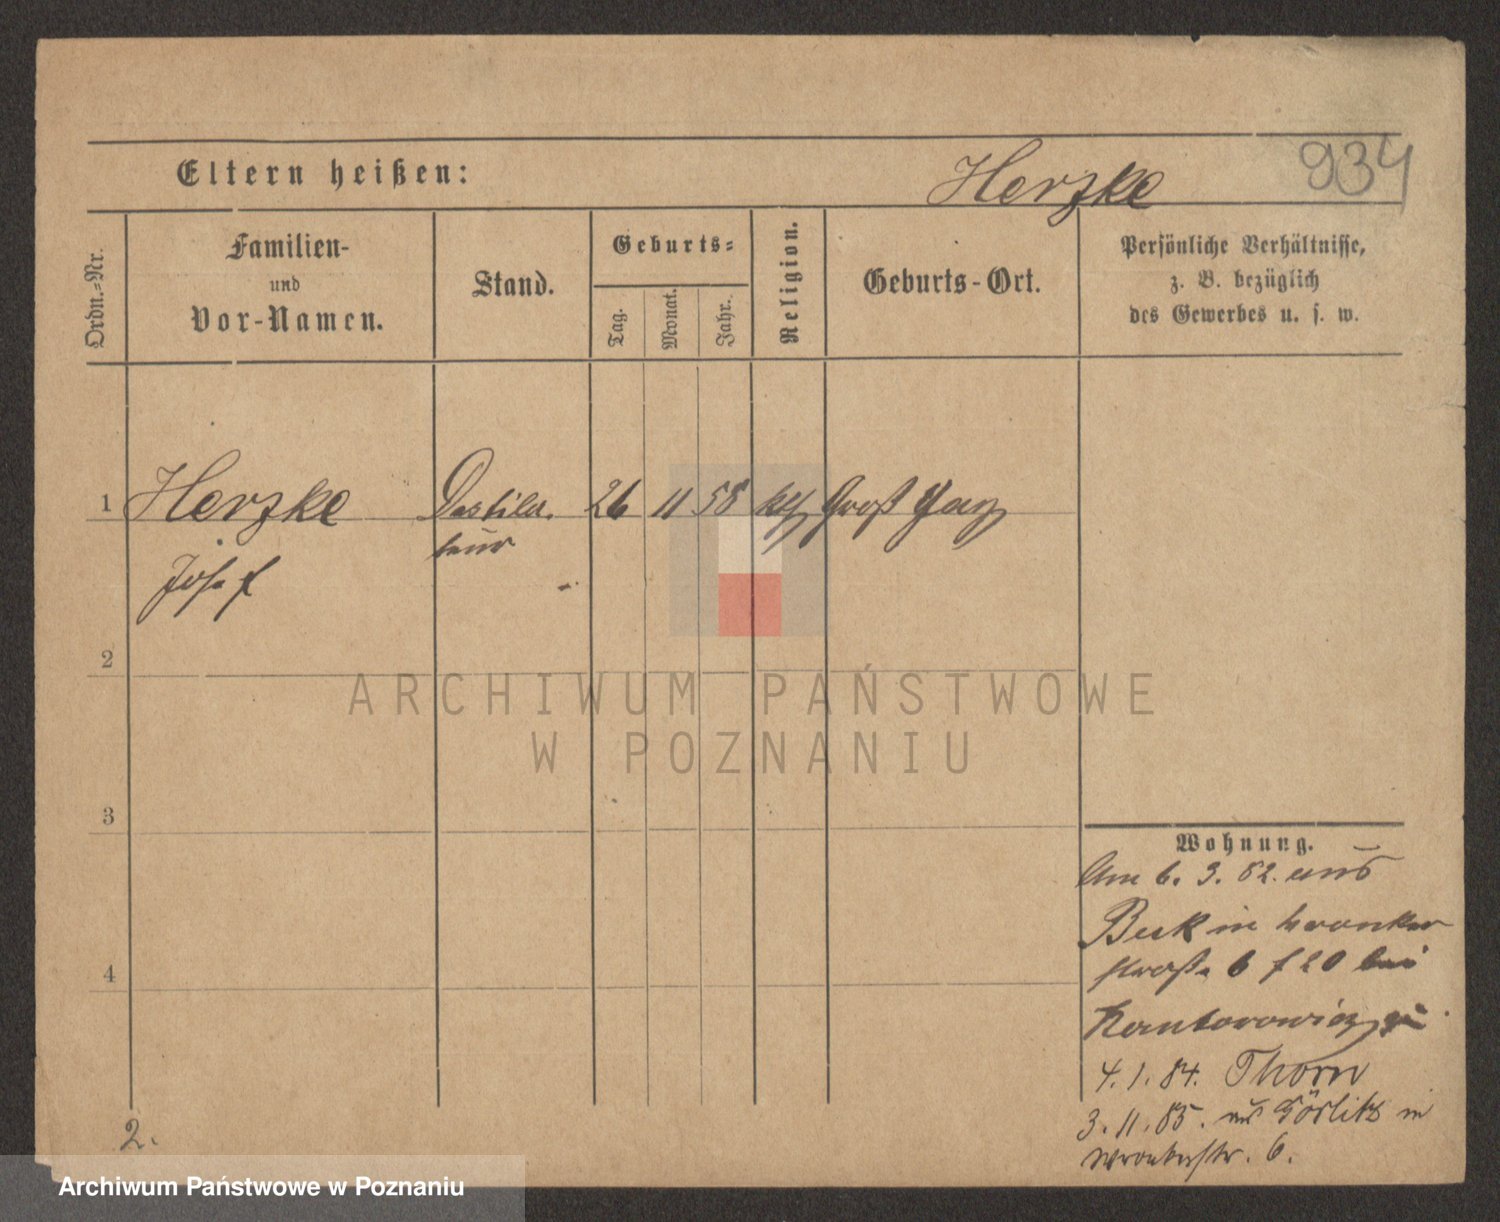 934
Eltern heißen: Herzke
Ordn.-Nr.
Familien-
und
Vor-Namen.
Stand.
Geburts-
Tag.
Monat.
Jahr.
Religion.
Geburts-Ort.
Persönliche Verhältnisse,
z. B. bezüglich
des Gewerbes u. s. w.
1 Herzke Destilla- 26 11 58 kth Groß
teur
Josef
2
3
4
ARCHIWUM PAŃSTWOWE
W POZNANIU
Wohnung.
Am 6. 3. 82. aus
Buk in Wronker
straße 6 f 20 bei
Kantorowicz
4. 1. 84. Thorn
3. 11. 85. aus Görlitz in
Wronkerstr. 6.
2.
Archiwum Państwowe w Poznaniu